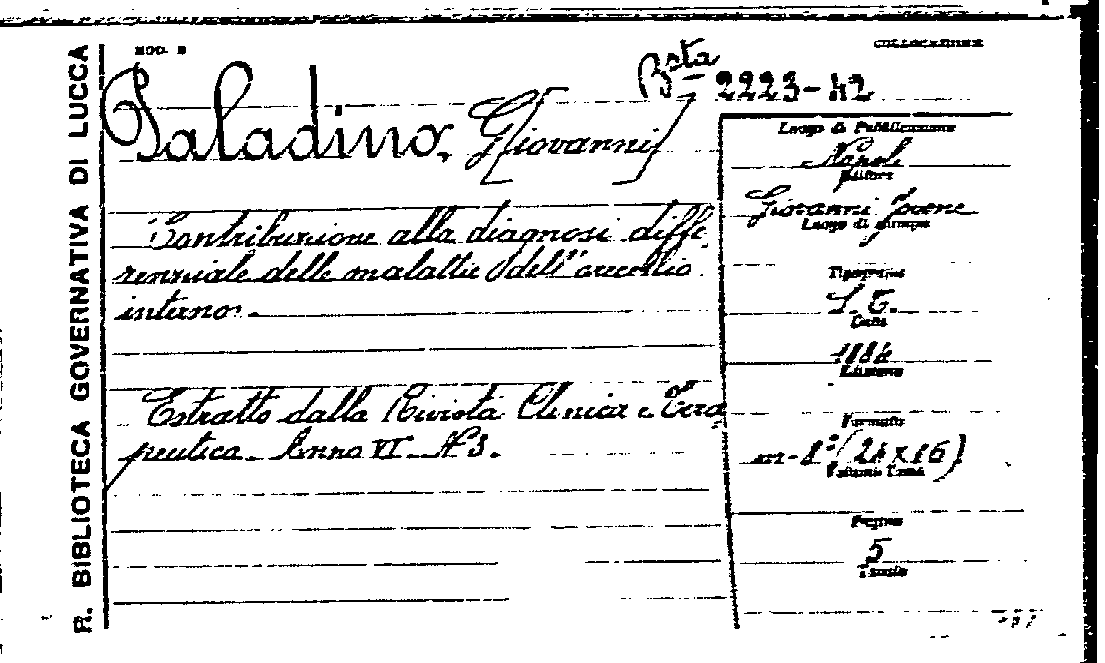 R. BIBLIOTECA GOVERNATIVA DI LUCCA
MOD. B
COLLOCAZIONE
Bsta 2223-42
Paladino, G[iovanni]
Contribuzione alla diagnosi diffe,
renziale delle malattie dell'orecchio
interno.
Estratto dalla Rivista Clinica e Tera,
peutica. Anno VI N 3.
Luogo di Pubblicazione
Napoli
Editore
Giovanni Jovene
Luogo di stampa
Tipografia
S. T.
Data
1884
Edizione
Formato
in-8° (24x16)
Volumi Tomi
Pagine
5
Tavole